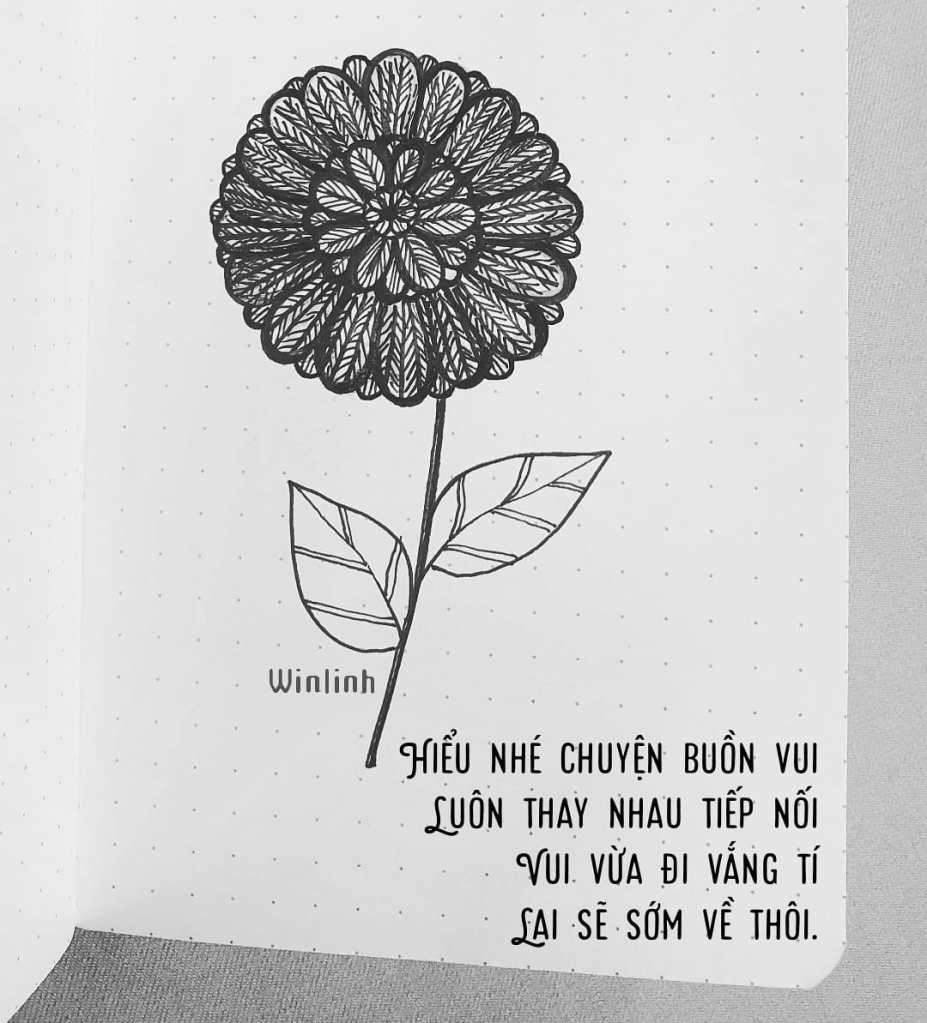 Winlinh
HIỂU NHÉ CHUYỆN BUỒN VUI
LUÔN THAY NHAU TIẾP NỐI
VUI VỪA ĐI VẮNG TÍ
LẠI SẼ SỚM VỀ THÔI.